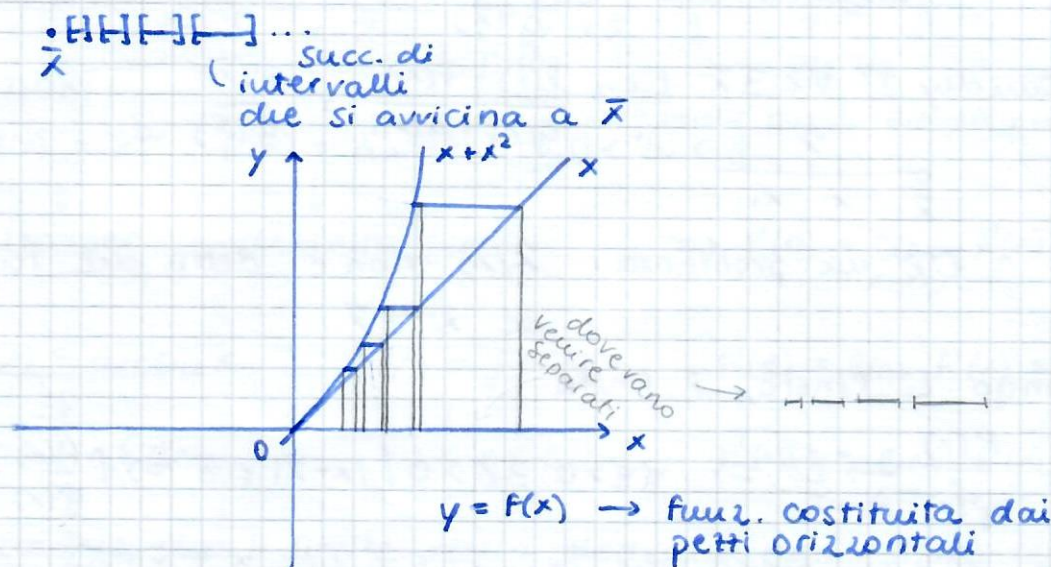 . [] [] [] [] ...
x̄
succ. di
intervalli
che si avvicina a x̄
y
x + x²
x
dovevano
venire
separati
→
0
x
y = f(x) → funz. costituita dai
pezzi orizzontali